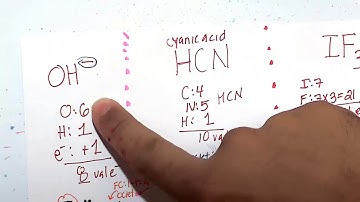 OH⊖
O: 6
H: 1
e⁻: +1
8 val e⁻
cyanic acid
HCN
C: 4
N: 5
HCN
H: 1
10 val
IF
I: 7
F: 7x3=21